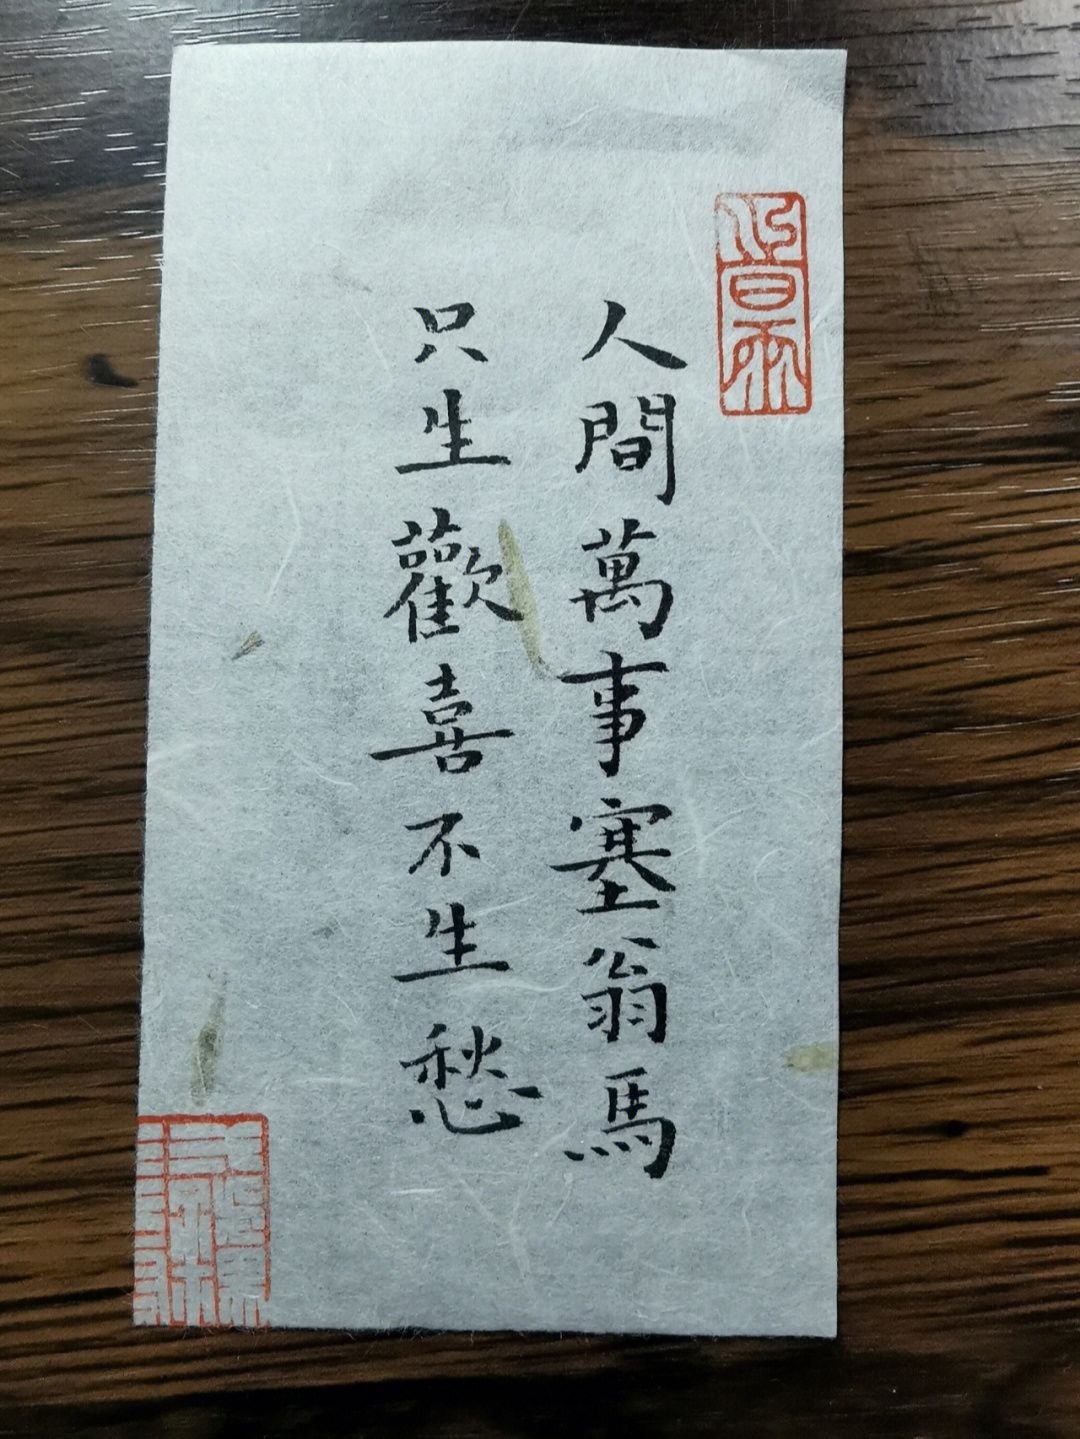 人間萬事塞翁馬
只生歡喜不生愁